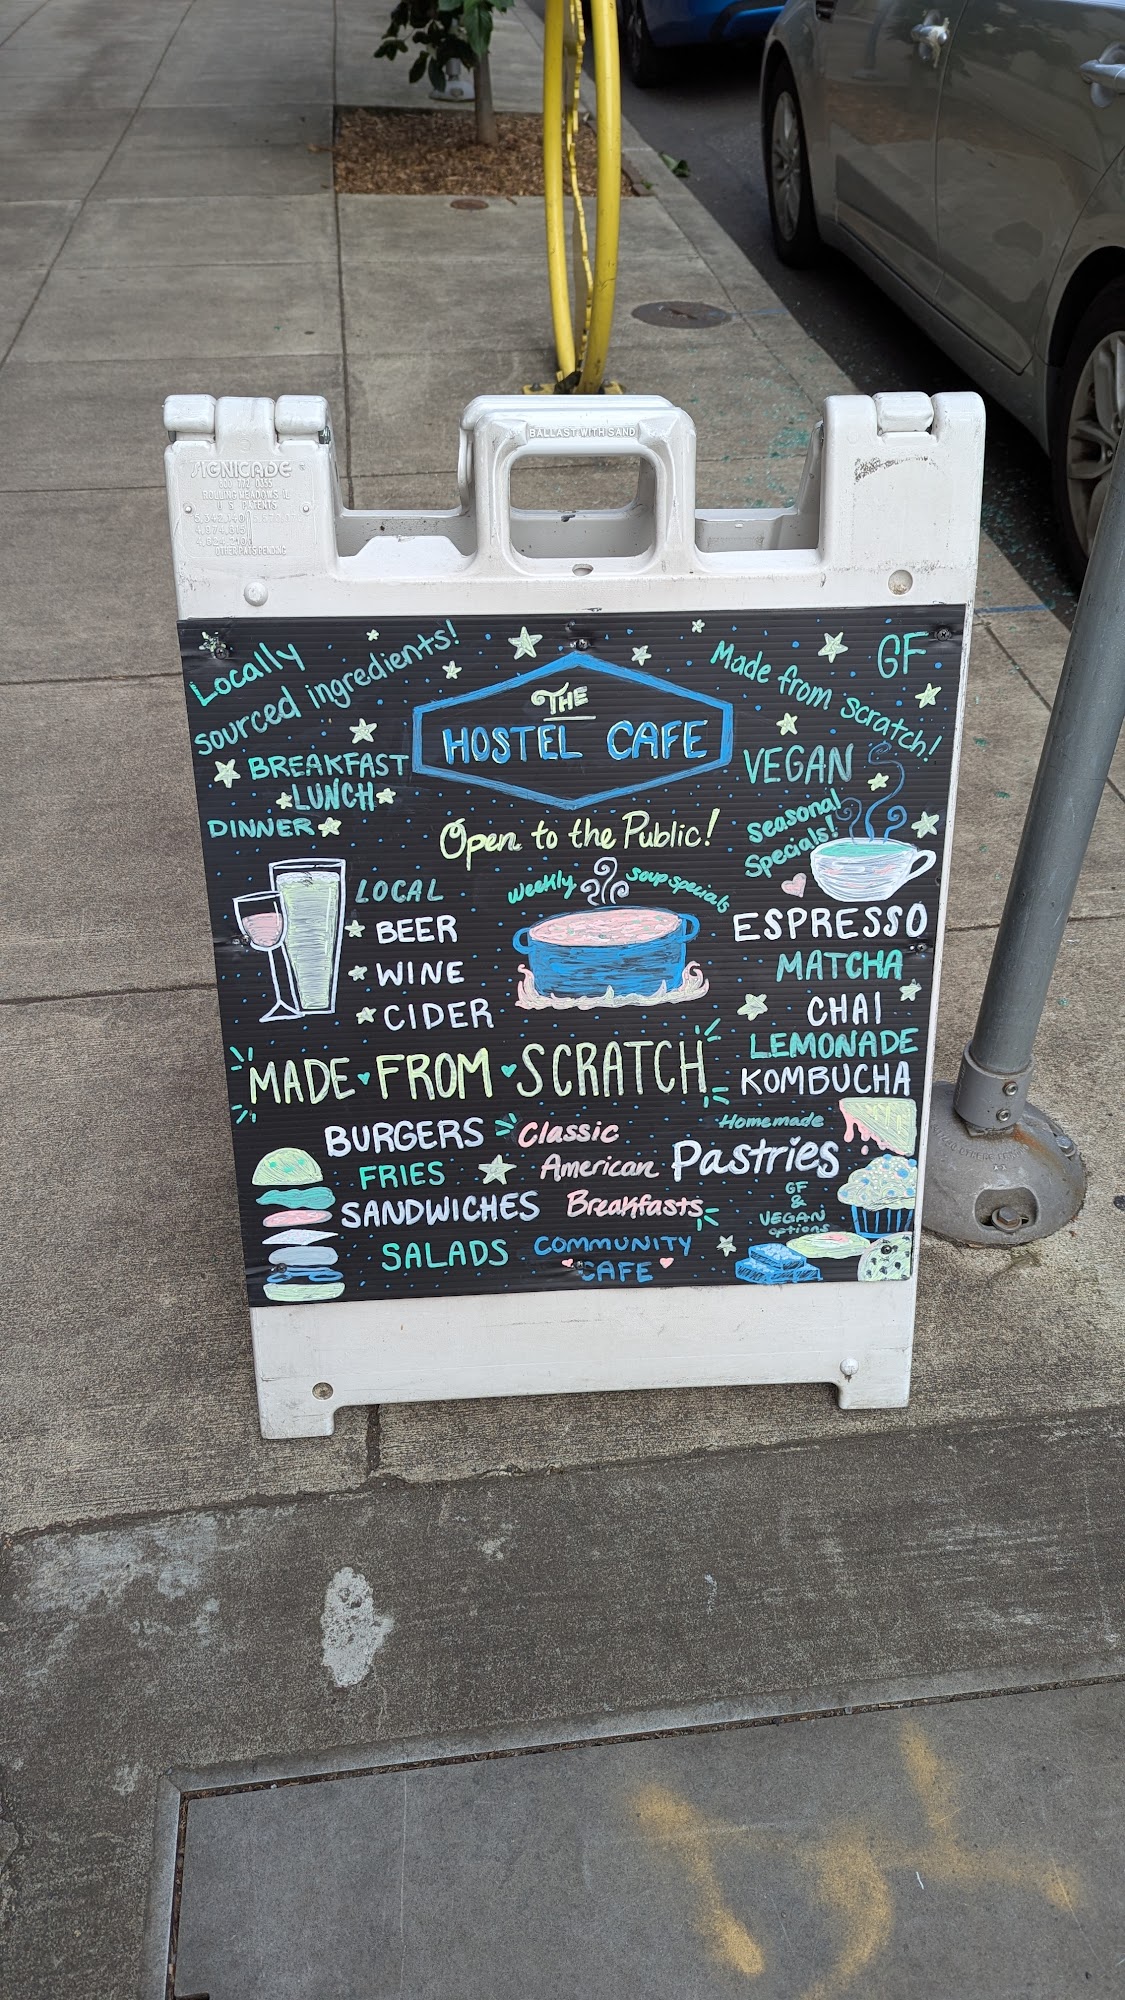 BALLAST WITH SAND
SIGNICADE
ROLLING MEADOWS IL
U S PATENTS
OTHER PATS PENDING
Locally
sourced ingredients!
THE
HOSTEL CAFE
Made from scratch!
GF
BREAKFAST
LUNCH
DINNER
VEGAN
Open to the Public!
Seasonal
Specials!
LOCAL
BEER
WINE
CIDER
Weekly soup specials
ESPRESSO
MATCHA
CHAI
LEMONADE
KOMBUCHA
MADE FROM SCRATCH
BURGERS
FRIES
SANDWICHES
SALADS
Classic
American
Breakfasts
COMMUNITY
CAFE
Homemade
Pastries
GF
&
VEGAN
options